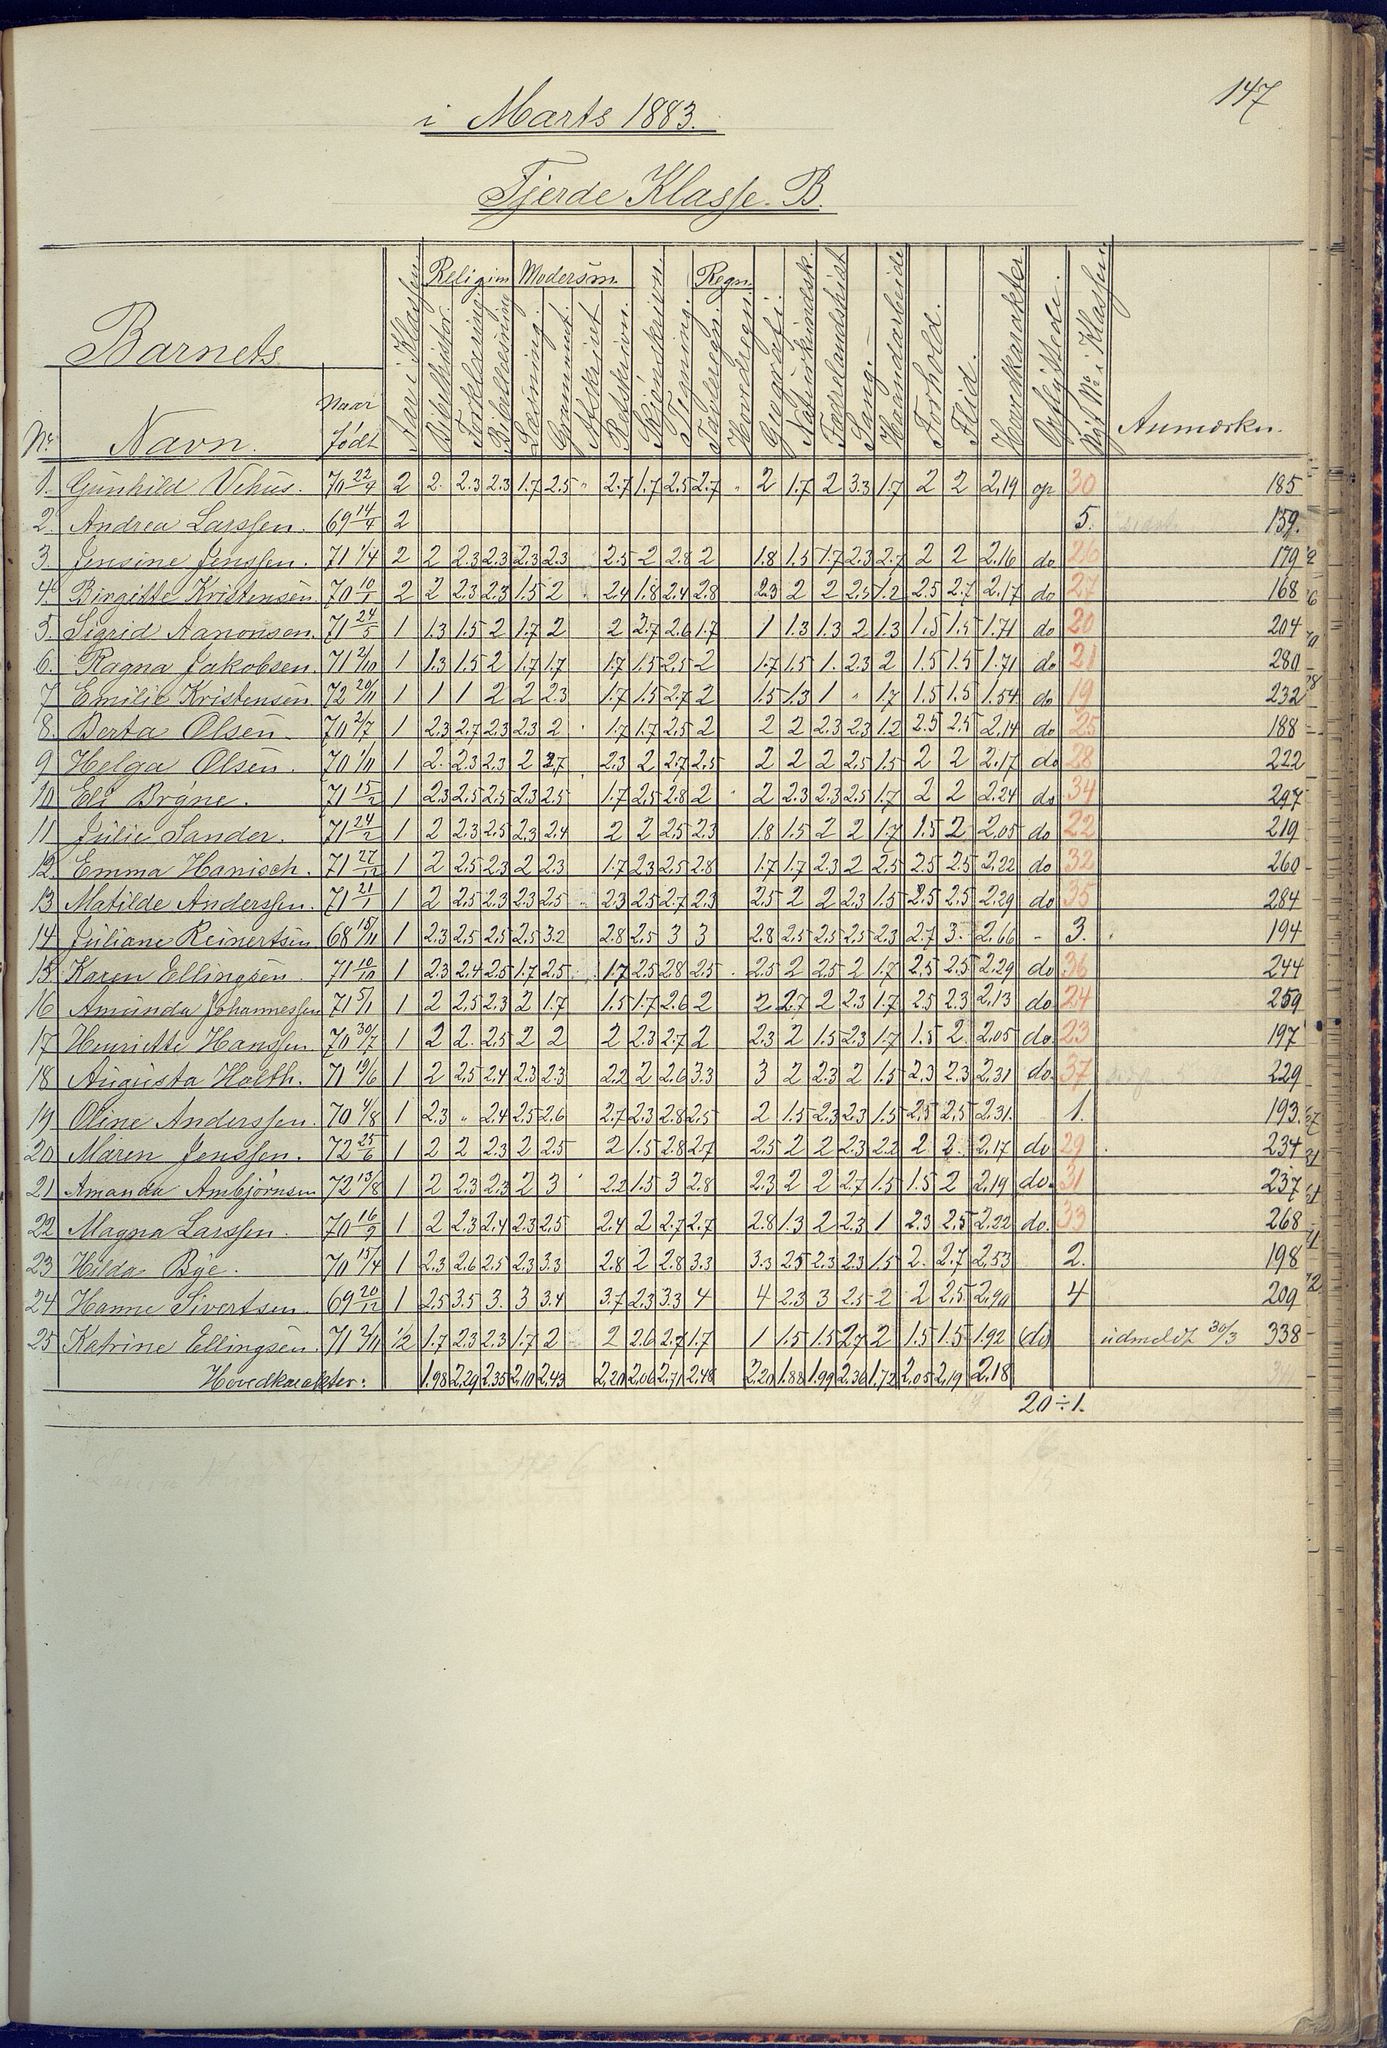 147
i Marts 1883.
Fjerde Klasse. B.
Barnets
Nr. Navn. Naar Født Aar i Klassen. Religion Bibelhistor. Forklaring. Bibellæsning Modersm. Læsning. Grammat. Afskrivt Retskrivn. Skjønskrivn. Tegning. Regn. Tavleregn. Hovedregn. Geografi. Naturkundsk. Fædrelandshist Sang. Haandarbeide Forhold. Flid. Hovedkarakter. Opflyttede. Nyt No i Klassen. Anmærkn.
1. Gunhild Vehus. 70 22/4 2 2. 2.3 2.3 1.7 2.5 " 2.7 1.7 2.5 2.7 " 2 1.7 2 3.3 1.7 2 2 2,19 op 30 185
2. Andrea Larssen. 69 14/4 2 5. 159.
3. Jensine Jenssen. 71 1/4 2 2 2.3 2.3 2.3 2.3 2.5 2 2.8 2 1.8 1.5 1.7 2.3 2.7 2 2 2.16 do 26 179
4. Birgitte Kristensen 70 10/1 2 2 2.3 2.3 1.5 2 2.4 1.8 2.4 2.8 2.3 2 2 2.5 1.2 2.5 2.7 2.17 do 27 168
5. Sigrid Aanonsen. 71 24/5 1 1.3 1.5 2 1.7 2 2 2.7 2.6 1.7 1 1.3 1.3 2 1.3 1.5 1.5 1.71 do 20 204
6. Ragna Jakobsen. 71 2/10 1 1.3 1.5 2 1.7 1.7 1.7 1.5 2.5 2 1.7 1.5 1. 2.3 2 1.5 1.5 1.71 do 21 280
7 Emilie Kristensen. 72 20/11 1 1 1 2 2 2.3 1.7 1.5 2.7 2 1.5 1.3 1 " 1.7 1.5 1.5 1.54 do 19 232
8. Berta Olsen. 70 2/7 1 2.3 2.7 2.3 2.3 2 1.7 1.7 2.5 2 2 2 2.3 2.3 1.2 2.5 2.5 2,14 do 25 188
9 Helga Olsen. 70 1/11 1 2. 2.3 2.3 2 2.7 2.3 2 2.7 2.5 2 2 2 2.5 1.5 2 2 2.17 do 28 222
10 Eli Brÿne. 71 15/2 1 2.3 2.5 2.5 2.3 2.5 1.7 2.5 2.8 2 2 2.3 2.3 2.5 1.7 2 2 2.24 do 34 297
11 Julie Sander. 71 24/2 1 2 2.3 2.5 2.3 2.4 2 2 2.5 2.3 1.8 1.5 2 2 1.7 1.5 2 2,05 do 22 219
12. Emma Hanisch. 71 27/12 1 2 2.5 2.3 2 2.3 1.7 2.3 2.5 2.8 1.7 1.7 2.3 2 2.5 2.5 2.5 2,22 do 32 260
13 Matilde Anderssen. 71 21/1 1 2 2,5 2.3 2.3 2.5 2.3 2.5 2.7 2.3 2.5 2 2 2.3 1.5 2.5 2.5 2.29 do 35 284
14 Juliane Reinertsen 68 15/11 1 2.3 2.5 2.5 2.5 3.2 2.8 2.5 3 3 2.8 2.5 2.5 2.5 2.3 2.7 3. 2,66 - 3. 194
15 Karen Ellingsen 71 10/10 1 2.3 2.4 2.5 1.7 2.5 1.7 2.5 2.8 2.5 2.5 2 2.5 2 1.7 2.5 2.5 2.29 do 36 244
16 Amunda Johannessen 71 5/1 1 2 2.5 2.3 2 1.7 1.5 1.7 2.6 2 2 2.7 2 2.3 1.7 2.5 2.3 2,13 do 24 259
17 Henriette Hanssen. 70 30/7 1 2 2. 2.5 2 2 2 2.3 2.7 2 2.3 2 1.5 2.3 1.7 1.5 2. 2,05 do. 23 197
18 Augusta Holth. 71 19/6 1 2 2.5 2.4 2.3 2.3 2.2 2 2.6 3.3 3 2 2.3 2 1.5 2.3 2.3 2,31 do. 37 229
19 Oline Anderssen. 70 4/8 1 2.3 " 2.4 2.5 2.6 2.7 2.3 2.8 2.5 2 1.5 2.3 2.3 1.5 2.5 2.5 2.31. 1. 193.
20 Maren Jenssen. 72 25/6 1 2 2 2.3 2 2.5 2 1.5 2.8 2.7 2.5 2 2 2.3 2.2 2. 2. 2,17 do 29 234
21 Amanda Ambjørnsen 72 13/8 1 2 2.3 2.3 2 3 2.2 1.5 3 2.8 2.3 2 2 2.7 1.5 1.5 2 2,19 do. 31 237
22 Magna Larssen. 70 16/9 1 2 2.3 2.4 2.3 2.5 2.4 2 2.7 2.7 2.8 1.3 2 2.3 1 2.3 2.5 2,22 do. 33 268
23 Hilda Bye. 70 15/4 1 2.3 2.6 2.5 2.3 3.3 2.8 2 2.8 3.3 3.3 2.5 2.3 2.3 1.5 2. 2.7 2,53 2. 198
24 Hanne Sivertsen. 69 20/12 1 2.5 3.5 3. 3 3.4 3.7 2.3 3.3 4 4 2.3 3 2.5 2 2 2.5 2,90 4 209
25 Katrine Ellingsen. 71 2/11 1/2 1.7 2.3 2.3 1.7 2 2 2.6 2.7 1.7 1 1.5 1.5 2.7 2 1.5 1.5 1.92 (do) udmeldt 30/3 338
Hovedkarakter: 1.98 2,29 2.35 2,10 2,43 2,20 2,06 2,71 2,48 2,20 1.88 1.99 2.36 1.72 2,05 2,19 2,18
20÷1.